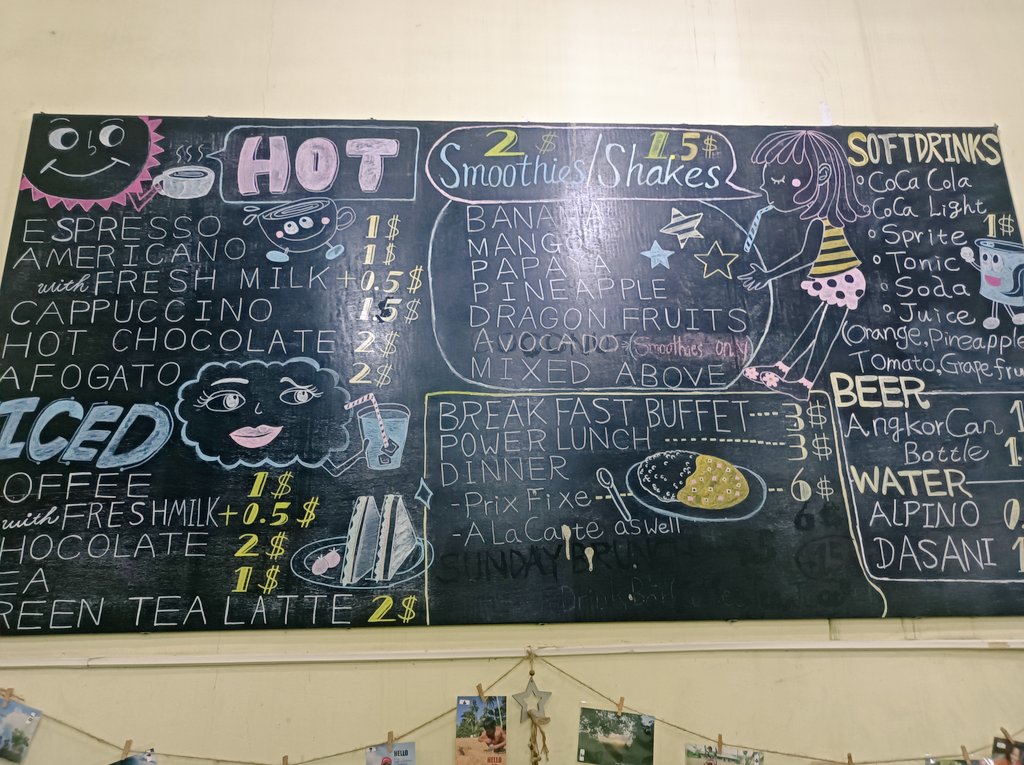 HOT
ESPRESSO 1$
AMERICANO 1$
with FRESH MILK +0.5$
CAPPUCCINO 1.5$
HOT CHOCOLATE 2$
AFOGATO 2$
ICED
OFFEE 1$
with FRESHMILK +0.5$
HOCOLATE 2$
EA 1$
REEN TEA LATTE 2$
2$ 1.5$
Smoothies/Shakes
BANANA
MANGO
PAPAYA
PINEAPPLE
DRAGON FRUITS
AVOCADO (Smoothies only)
MIXED ABOVE
BREAK FAST BUFFET ---- 3$
POWER LUNCH ---------- 3$
DINNER
-Prix Fixe -- 6$
-A La Carte as well
SUNDAY BRUNCH
SOFTDRINKS
CoCa Cola
CoCa Light
Sprite 1$
Tonic
Soda
Juice
(Orange, Pineapple
Tomato, Grapefru
BEER
Angkor Can 1
Bottle 1.
WATER
ALPINO 0.
DASANI 1
HELLO
HELLO